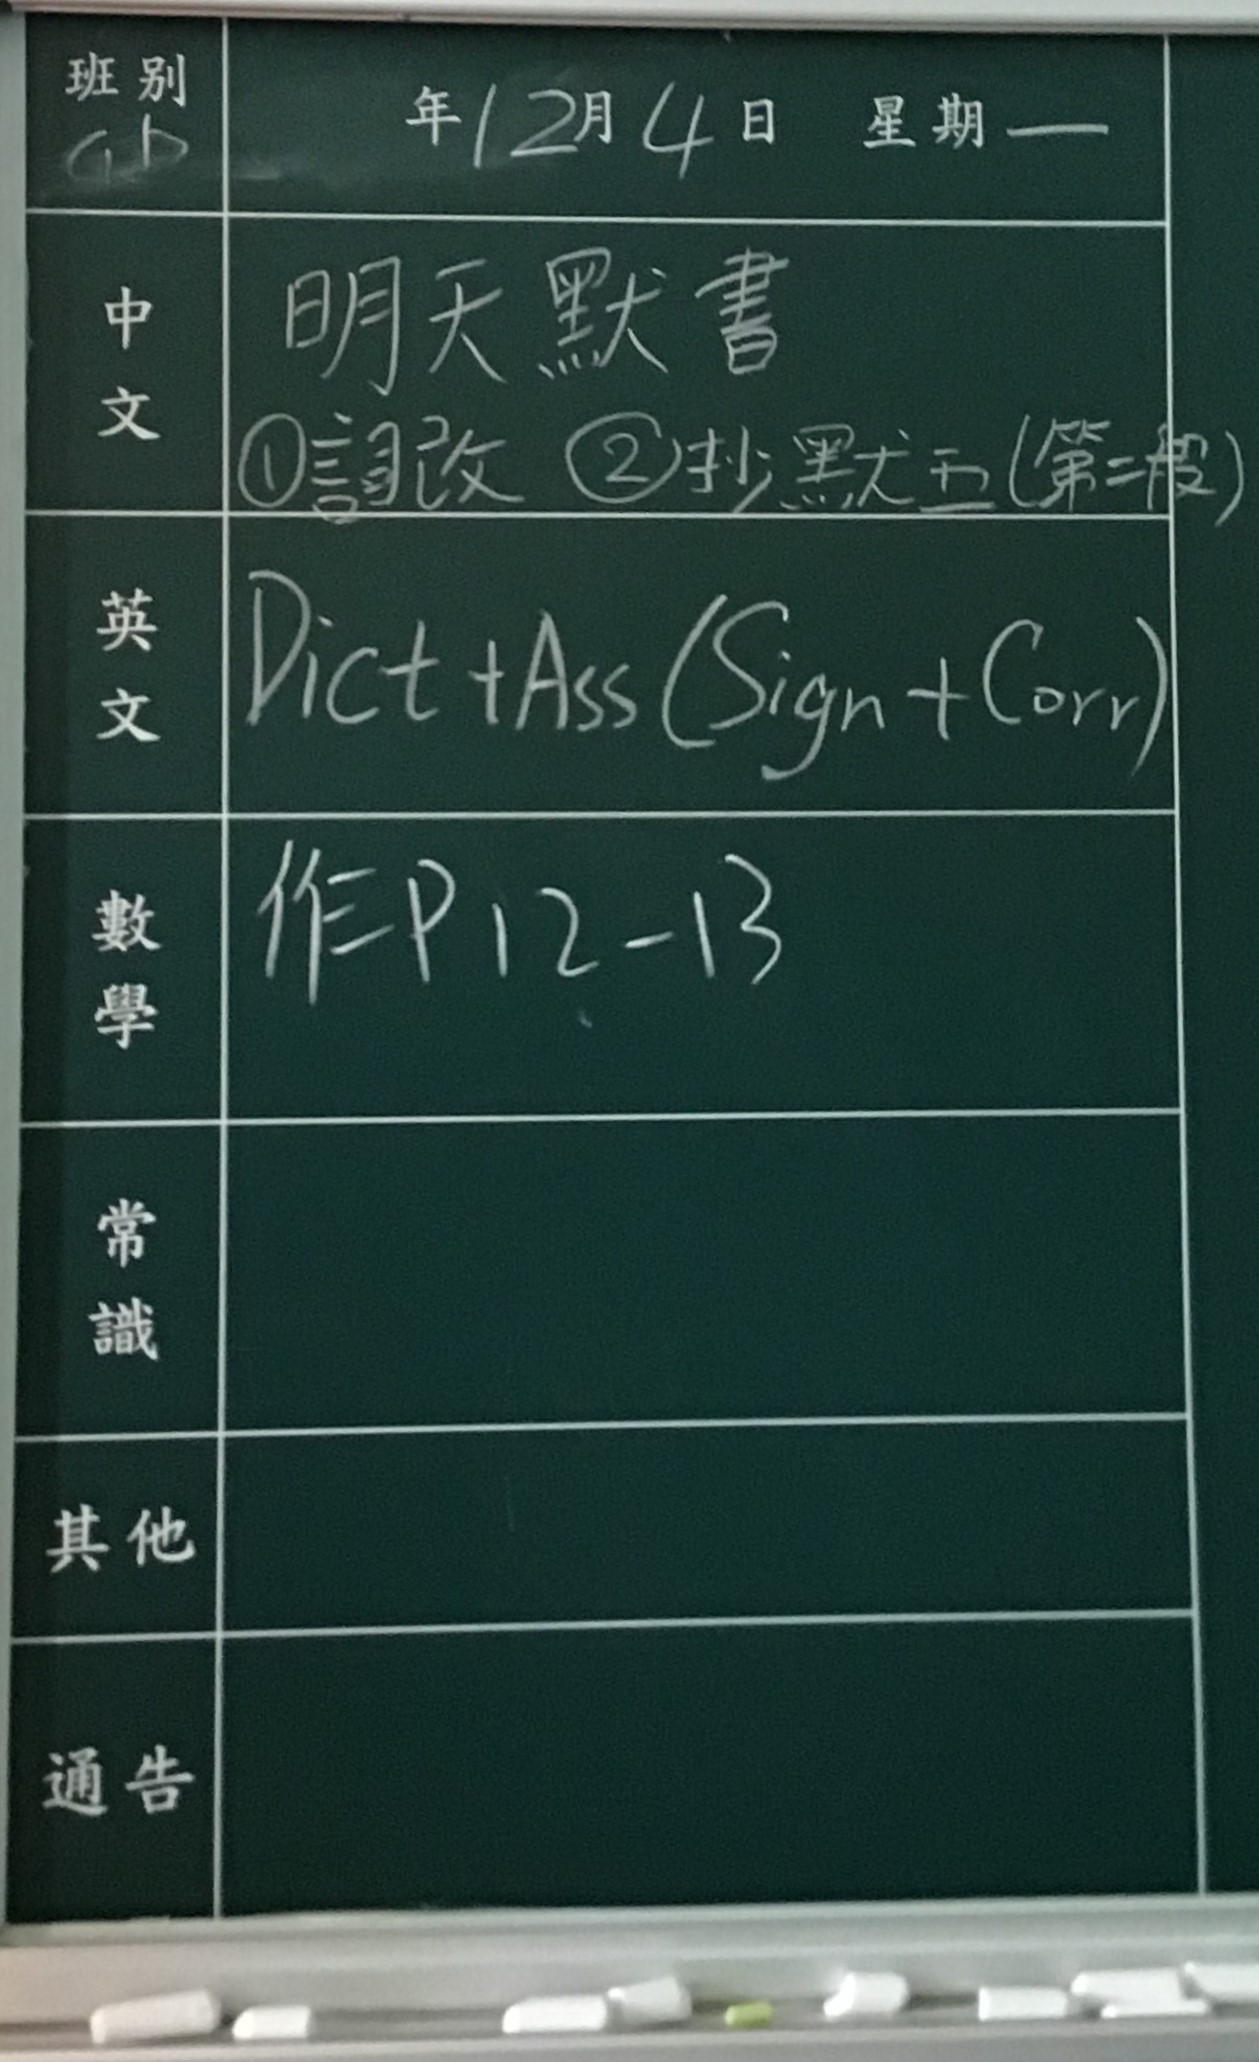 班別
年12月4日 星期一
中文
明天默書
①詞改 ②抄默五(第二段)
英文
Dict+Ass(Sign+Corr)
數學
作P12-13
常識
其他
通告